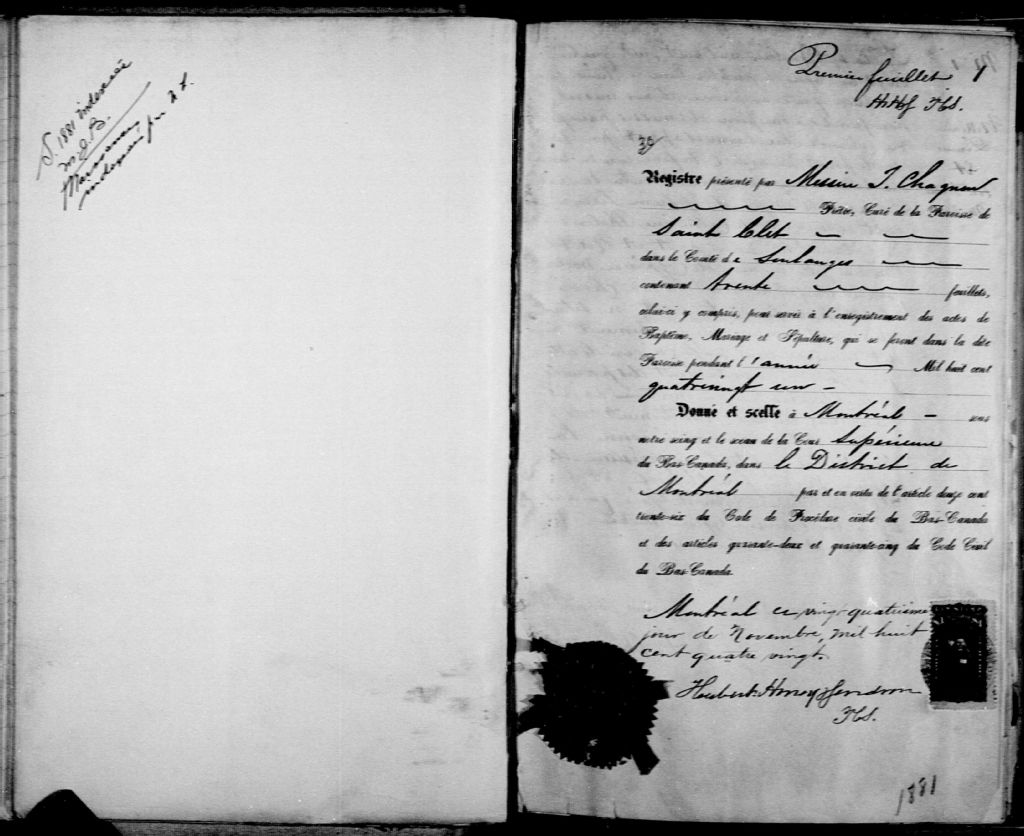 S. 1881 indexée
M. J. B.
Premier feuillet 1
HHG PCS.
30
Registre présenté par Messire J. Chagnon
Prêtre, Curé de la Paroisse de
Saint Clet
dans le Comté de Soulanges
contenant trente feuillets,
celui-ci y compris, pour servir à l'enregistrement des actes de
Baptême, Mariage et Sépulture, qui se feront dans la dite
Paroisse pendant l'année Mil huit cent
quatrevingt un -
Donné et scellé à Montréal - sous
notre seing et le sceau de la Cour Supérieure
du Bas-Canada, dans le District de
Montréal par et en vertu de l'article douze cent
trente-six du Code de Procédure civile du Bas-Canada
et des articles quarante-deux et quarante-cinq du Code Civil
du Bas-Canada.
Montréal ce vingt quatrième
jour de Novembre, mil huit
cent quatre vingt.
Hubert Honey Gendron
PCS.
1881